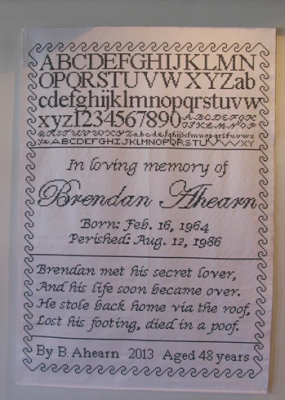 ABCDEFGHIJKLMN
OPQRSTUVWXYZab
cdefghijklmnopqrstuvw
xyz1234567890
In loving memory of
Brendan Ahearn
Born: Feb. 16, 1964
Perished: Aug. 12, 1986
Brendan met his secret lover,
And his life soon became over.
He stole back home via the roof,
Lost his footing, died in a poof.
By B. Ahearn 2013 Aged 48 years